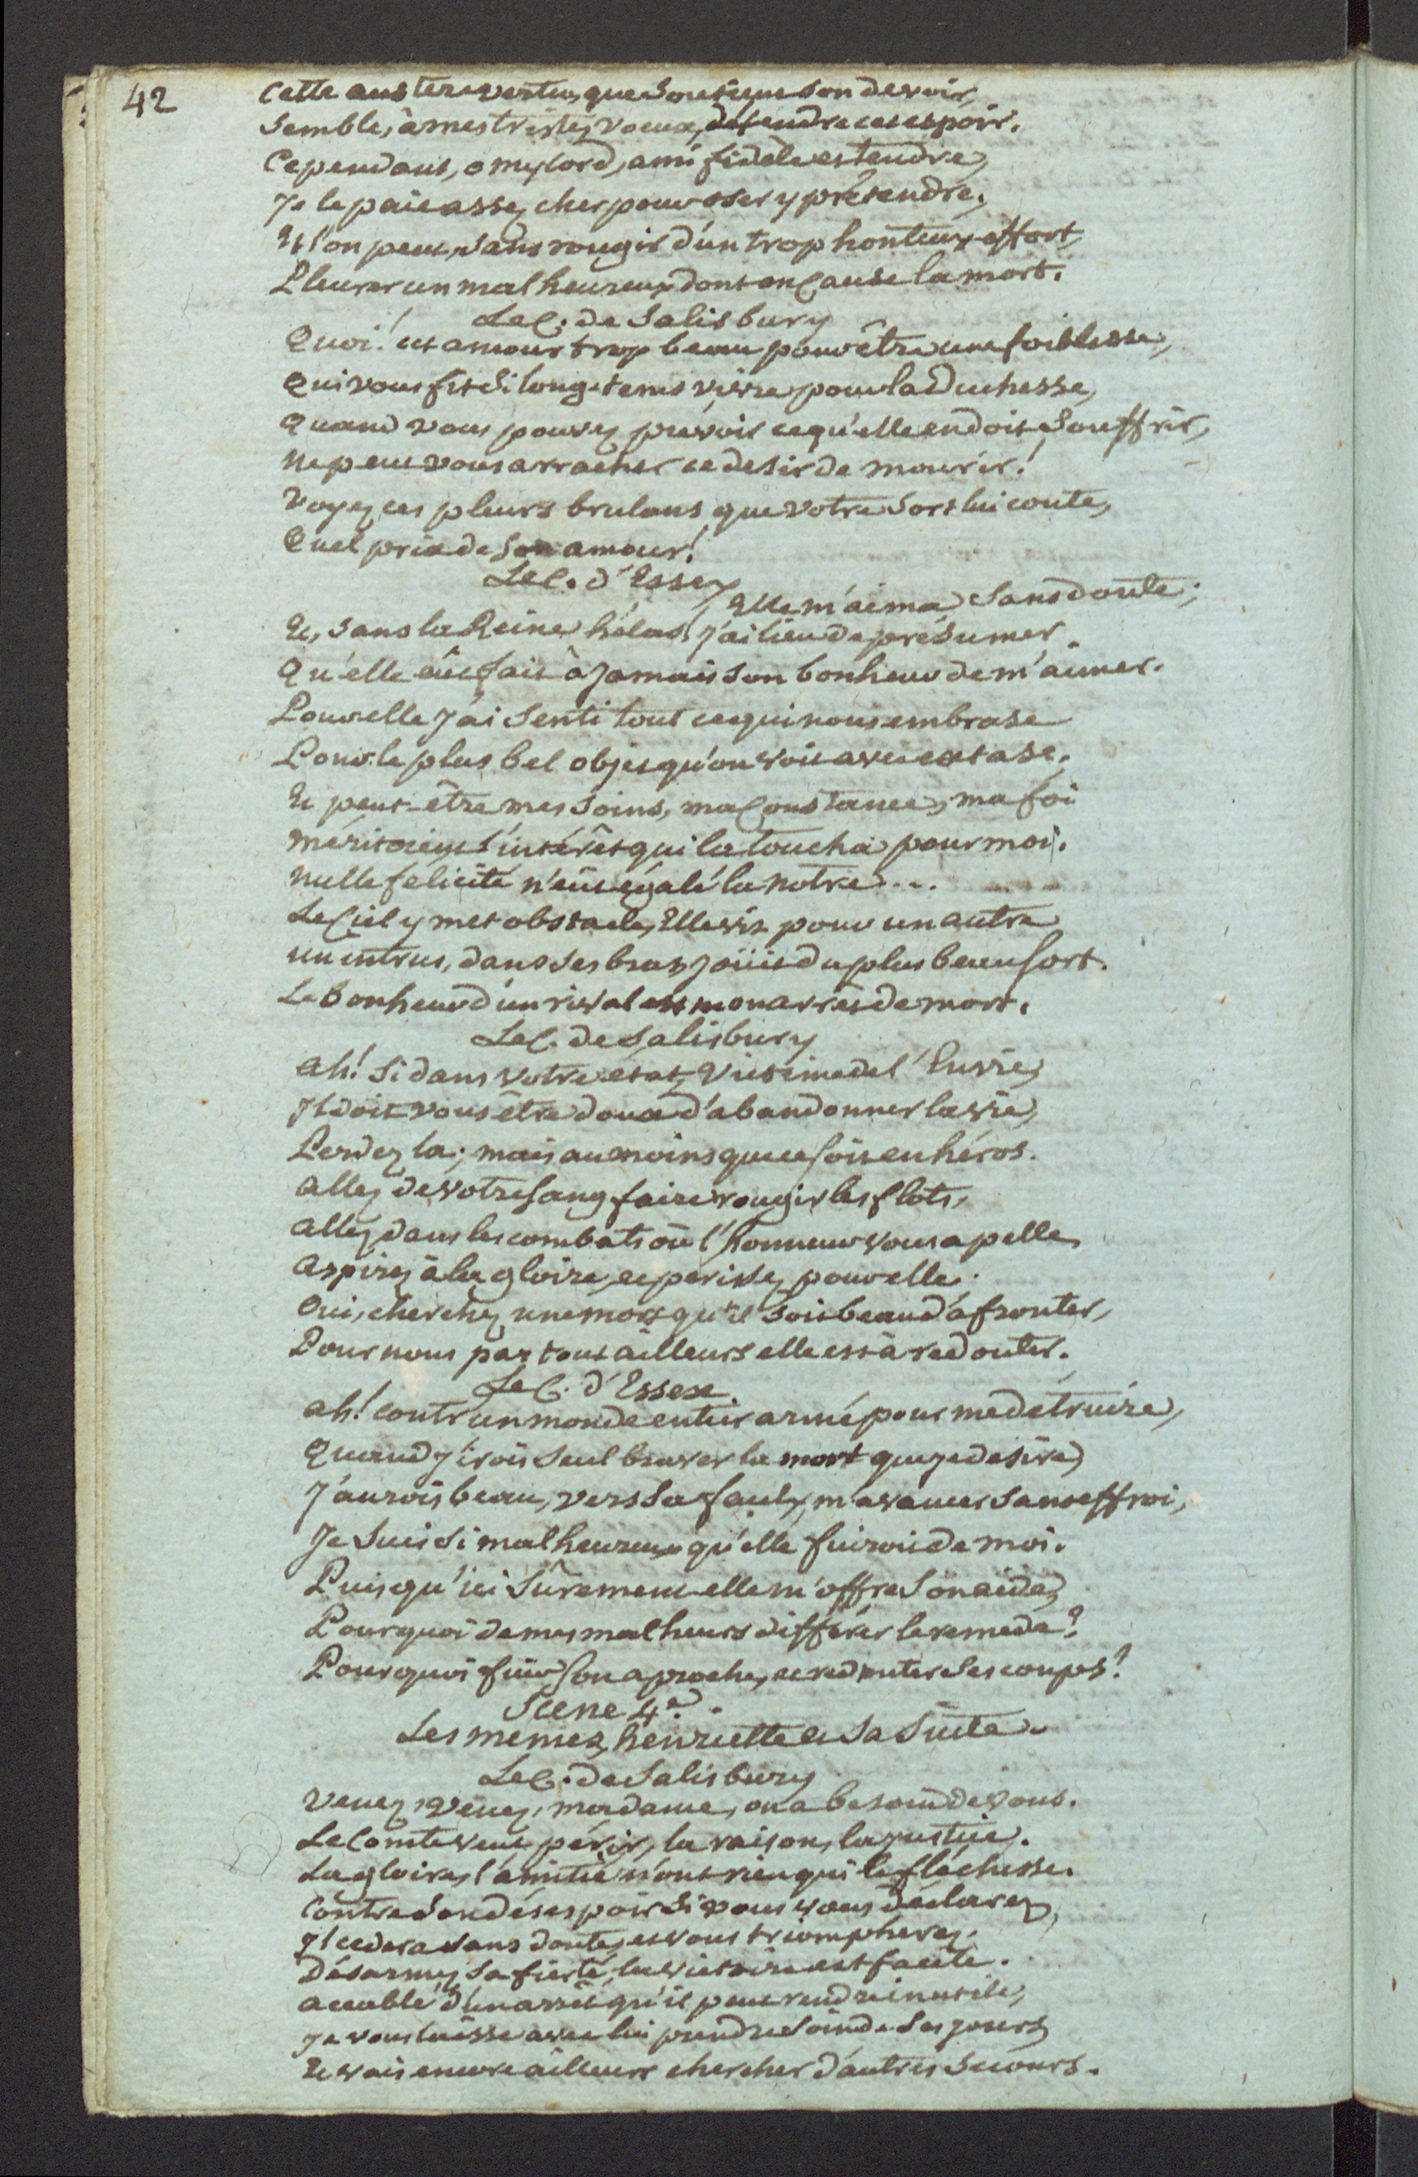 42
Cette austere vertu, que soutient son devoir,
Semble, à mes tristes voeux, défendre cet espoir.
Cependant, o mylord, ami fidele et tendre,
Je le paie assez cher pour oser y prétendre,
Et l'on peut, sans rougir d'un trop honteux effort,
Pleurer un malheureux dont on cause la mort.
Le C. de Salisbury
Quoi! cet amour trop beau pour être une foiblesse,
Qui vous fit si long-tems vivre pour la Duchesse,
Quand vous pouvez prévoir ce qu'elle en doit souffrir,
ne peut vous arracher ce desir de mourir!
Voyez ces pleurs brulans que votre sort lui coute,
Quel prix de son amour!
Le C. d'Essex
Elle m'aima sans doute;
Et, sans la Reine, hélas, j'ai lieu de présumer
Qu'elle eût fait à jamais son bonheur de m'aimer.
Pour elle j'ai senti tout ce qui nous embrase
Pour le plus bel objet qu'on voit avec extase.
Et peut-être mes soins, ma Constance, ma foi
méritoient l'intérêt qui la toucha pour moi.
nulle felicité n'eût égalé la notre...
Le Ciel y met obstacle, Elle vit pour un autre
un intrus, dans ses bras, joüit du plus beau sort.
Le bonheur d'un rival est mon arrêt de mort.
Le C. de Salisbury
ah! si dans votre etat, Victime de l'Envie,
Il doit vous être doux d'abandonner la vie,
Perdez la; mais au moins que ce soit en héros.
allez de votre sang faire rougir les flots,
allez dans les combats où l'honneur vous apelle,
Aspirez à la gloire, et perissez pour elle.
Oui, cherchez une mort qu'il soit beau d'afronter,
Pour nous par tout ailleurs elle est à redouter.
Le C. d'Essex.
ah! contr'un monde entier armé pour me détruire,
Quand j'irois seul braver la mort que je desire,
J'aurois beau, vers sa faulx, m'avancer sans effroi,
Je suis si malheureux qu'elle fuiroit de moi.
Puisqu'ici sûrement elle m'offre son aide,
Pourquoi de mes malheurs différer le remede?
Pourquoi fuir son aproche, et redouter ses coups?
Scene 4e.
Les memes, henriette et sa suite.
Le C. de Salisbury
Venez, venez, madame, on a besoin de vous.
Le Comte veut périr, la raison, la justice.
La gloire, l'amitié n'ont rien qui le fléchisse.
Contre son désespoir si vous vous déclarez,
Il cedera sans doute, et vous triompherez.
Désarmez sa fierté, la victoire est facile.
accablé d'un arrêt qu'il peut rendre inutile,
Je vous laisse avec lui prendre soin de ses jours,
Et vais encore ailleurs chercher d'autres secours.